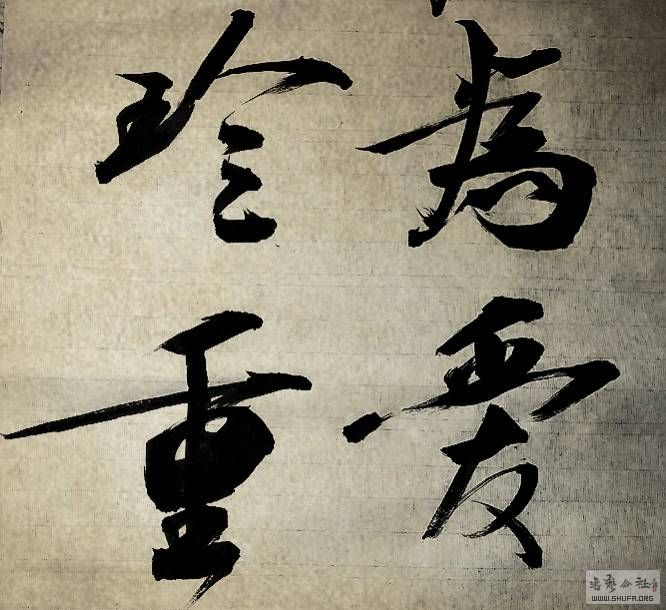 為愛
珍重
書藝公社
WWW.SHUFA.ORG